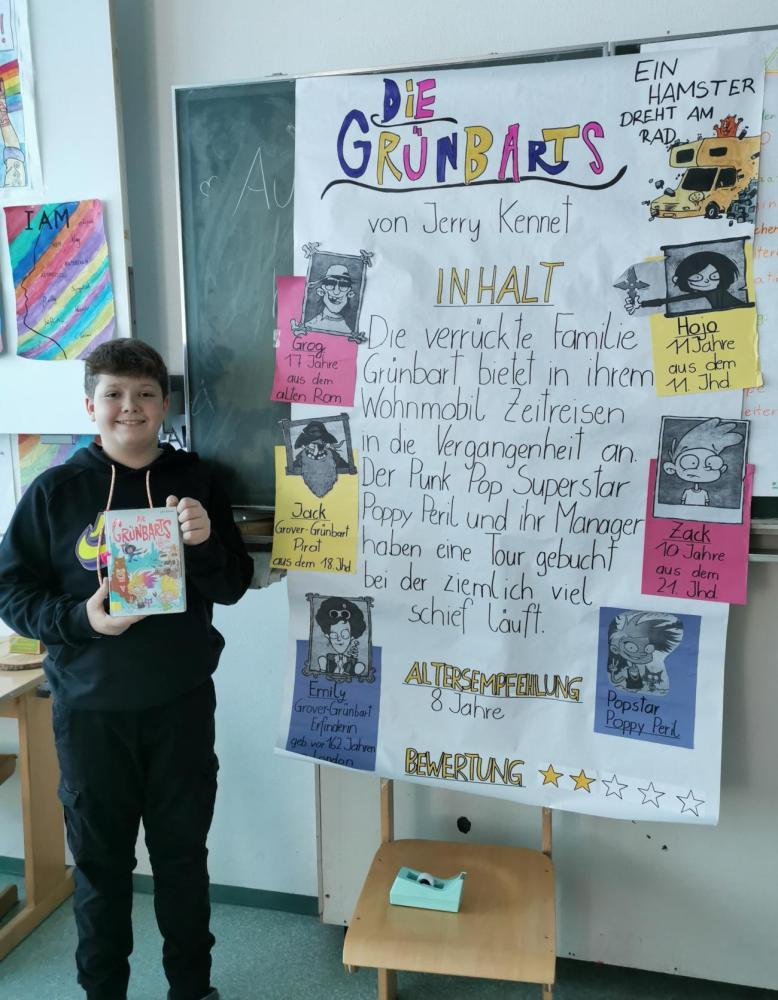 DIE
GRÜNBARTS
EIN
HAMSTER
DREHT AM
RAD
von Jerry Kennet
INHALT
Die verrückte Familie
Grünbart bietet in ihrem
Wohnmobil Zeitreisen
in die Vergangenheit an.
Der Punk Pop Superstar
Poppy Peril und ihr Manager
haben eine Tour gebucht
bei der ziemlich viel
schief läuft.
Grog
17 Jahre
aus dem
alten Rom
Hojo
11 Jahre
aus dem
11. Jhd.
Jack
Grover-Grünbart
Pirat
aus dem 18.Jhd
Zack
10 Jahre
aus dem
21. Jhd.
Emily
Grover-Grünbart
Erfinderin
geb vor 162 Jahren
London
Popstar
Poppy Peril
ALTERSEMPFEHLUNG
8 Jahre
BEWERTUNG
I AM
Au
DIE
GRÜNBARTS